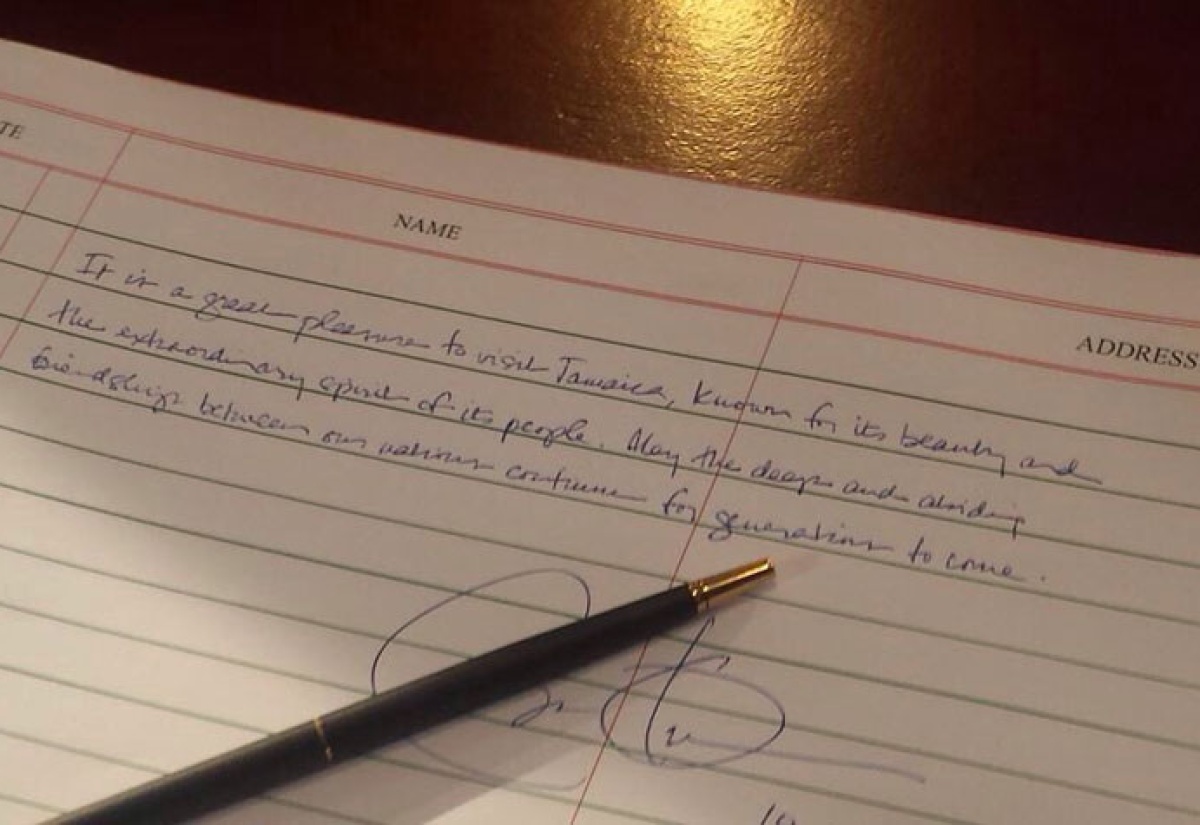 TE NAME ADDRESS
It is a great pleasure to visit Jamaica, known for its beauty and
the extraordinary spirit of its people. May the deep and abiding
friendship between our nations continue for generations to come.